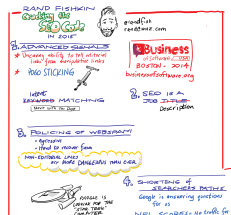 RAND FISHKIN
Cracking the
SEO Code
IN 2015
@randfish
Business
of Software USA
BOSTON - 2014
businessofsoftware.org
1. ADVANCED SIGNALS
* Uncanny ability to tell editorial
links from manipulative links
* POGO STICKING
Intent
KEYWORD MATCHING
2. SEO IS A
JOB TITLE
Description
3. POLICING OF WEBSPAM
- aggressive
- Hard to recover from
NON-EDITORIAL LINKS
are MORE DANGEROUS THAN EVER
GOOGLE IS
LOOKING FOR THE
"STAR TREK"
COMPUTER
4. SHORTENING OF
SEARCHERS PATHS
Google is answering questions
for us